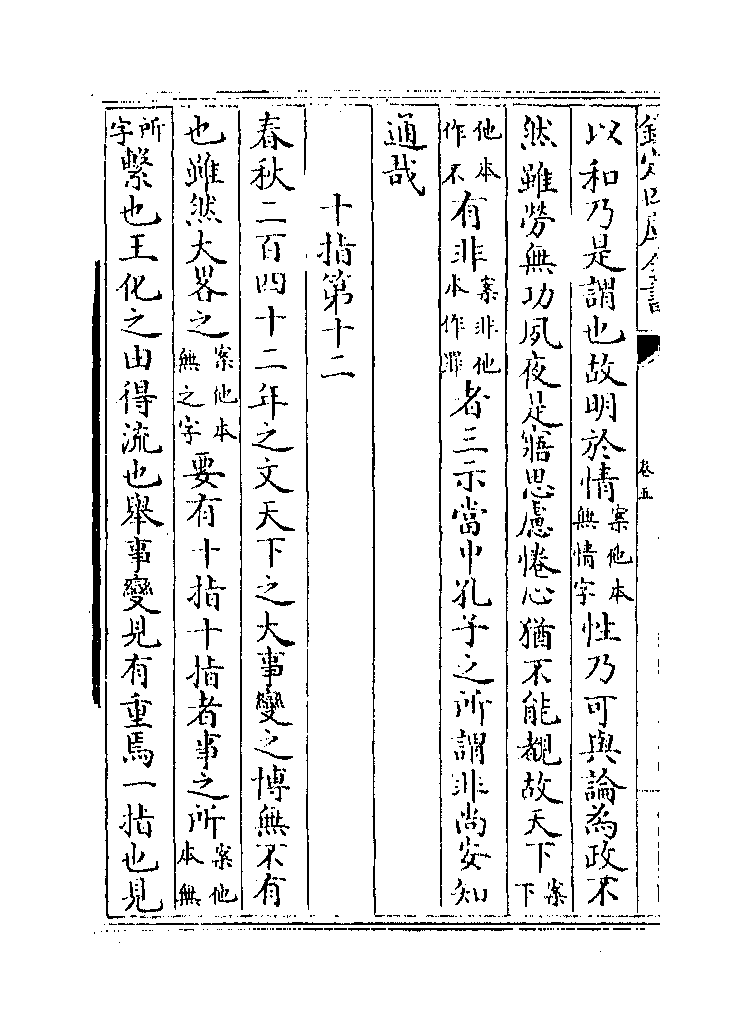 欽定四庫全書 卷五
以和乃是謂也故明於情案他本無情字性乃可與論為政不
然雖勞無功夙夜是寤思慮惓心猶不能覩故天下案下
他本作不有非案非他本作罪者三示當中孔子之所謂非尚安知
通哉
十指第十二
春秋二百四十二年之文天下之大事變之博無不有
也雖然大畧之案他本無之字要有十指十指者事之所案他本無
所字繫也王化之由得流也舉事變見有重焉一指也見